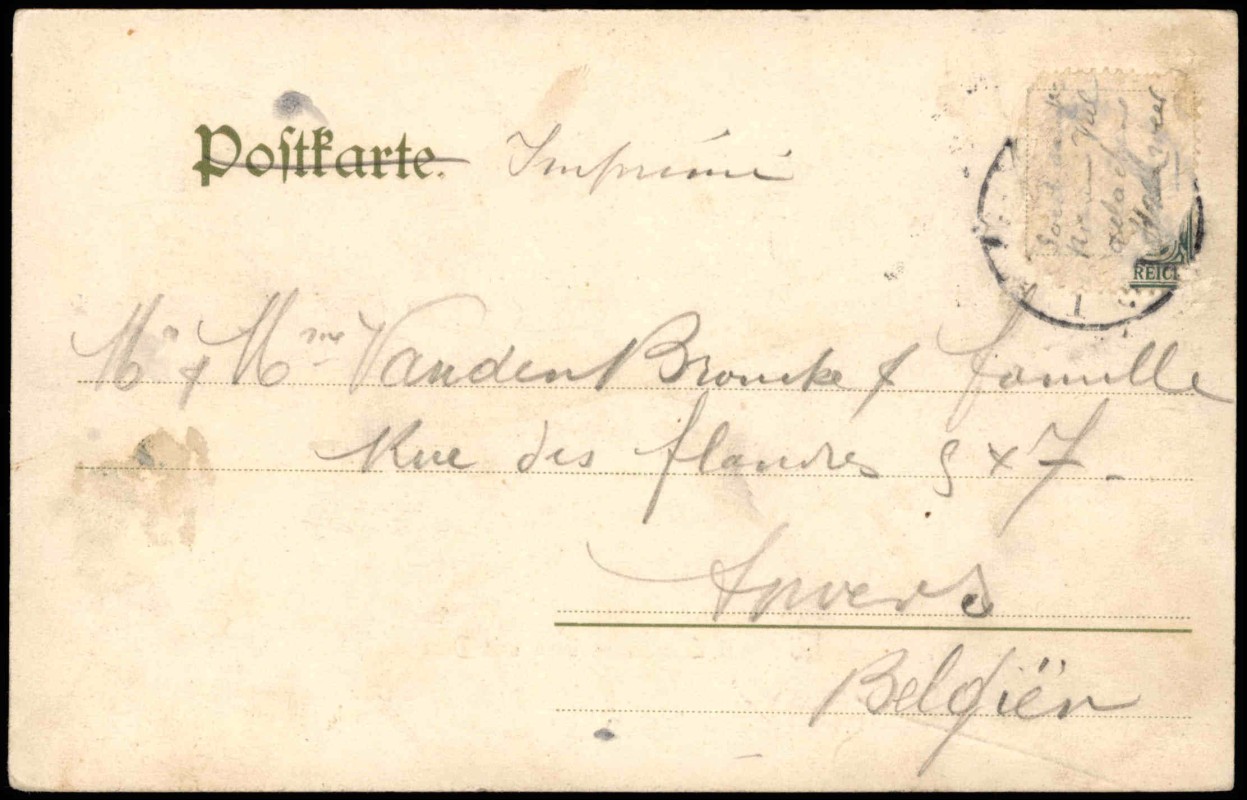 Postkarte. Imprimé
REICH
1
Mr & Mme Vanden Broucke & famille
Rue des flandres 5 x 7.
Anvers
Belgiën